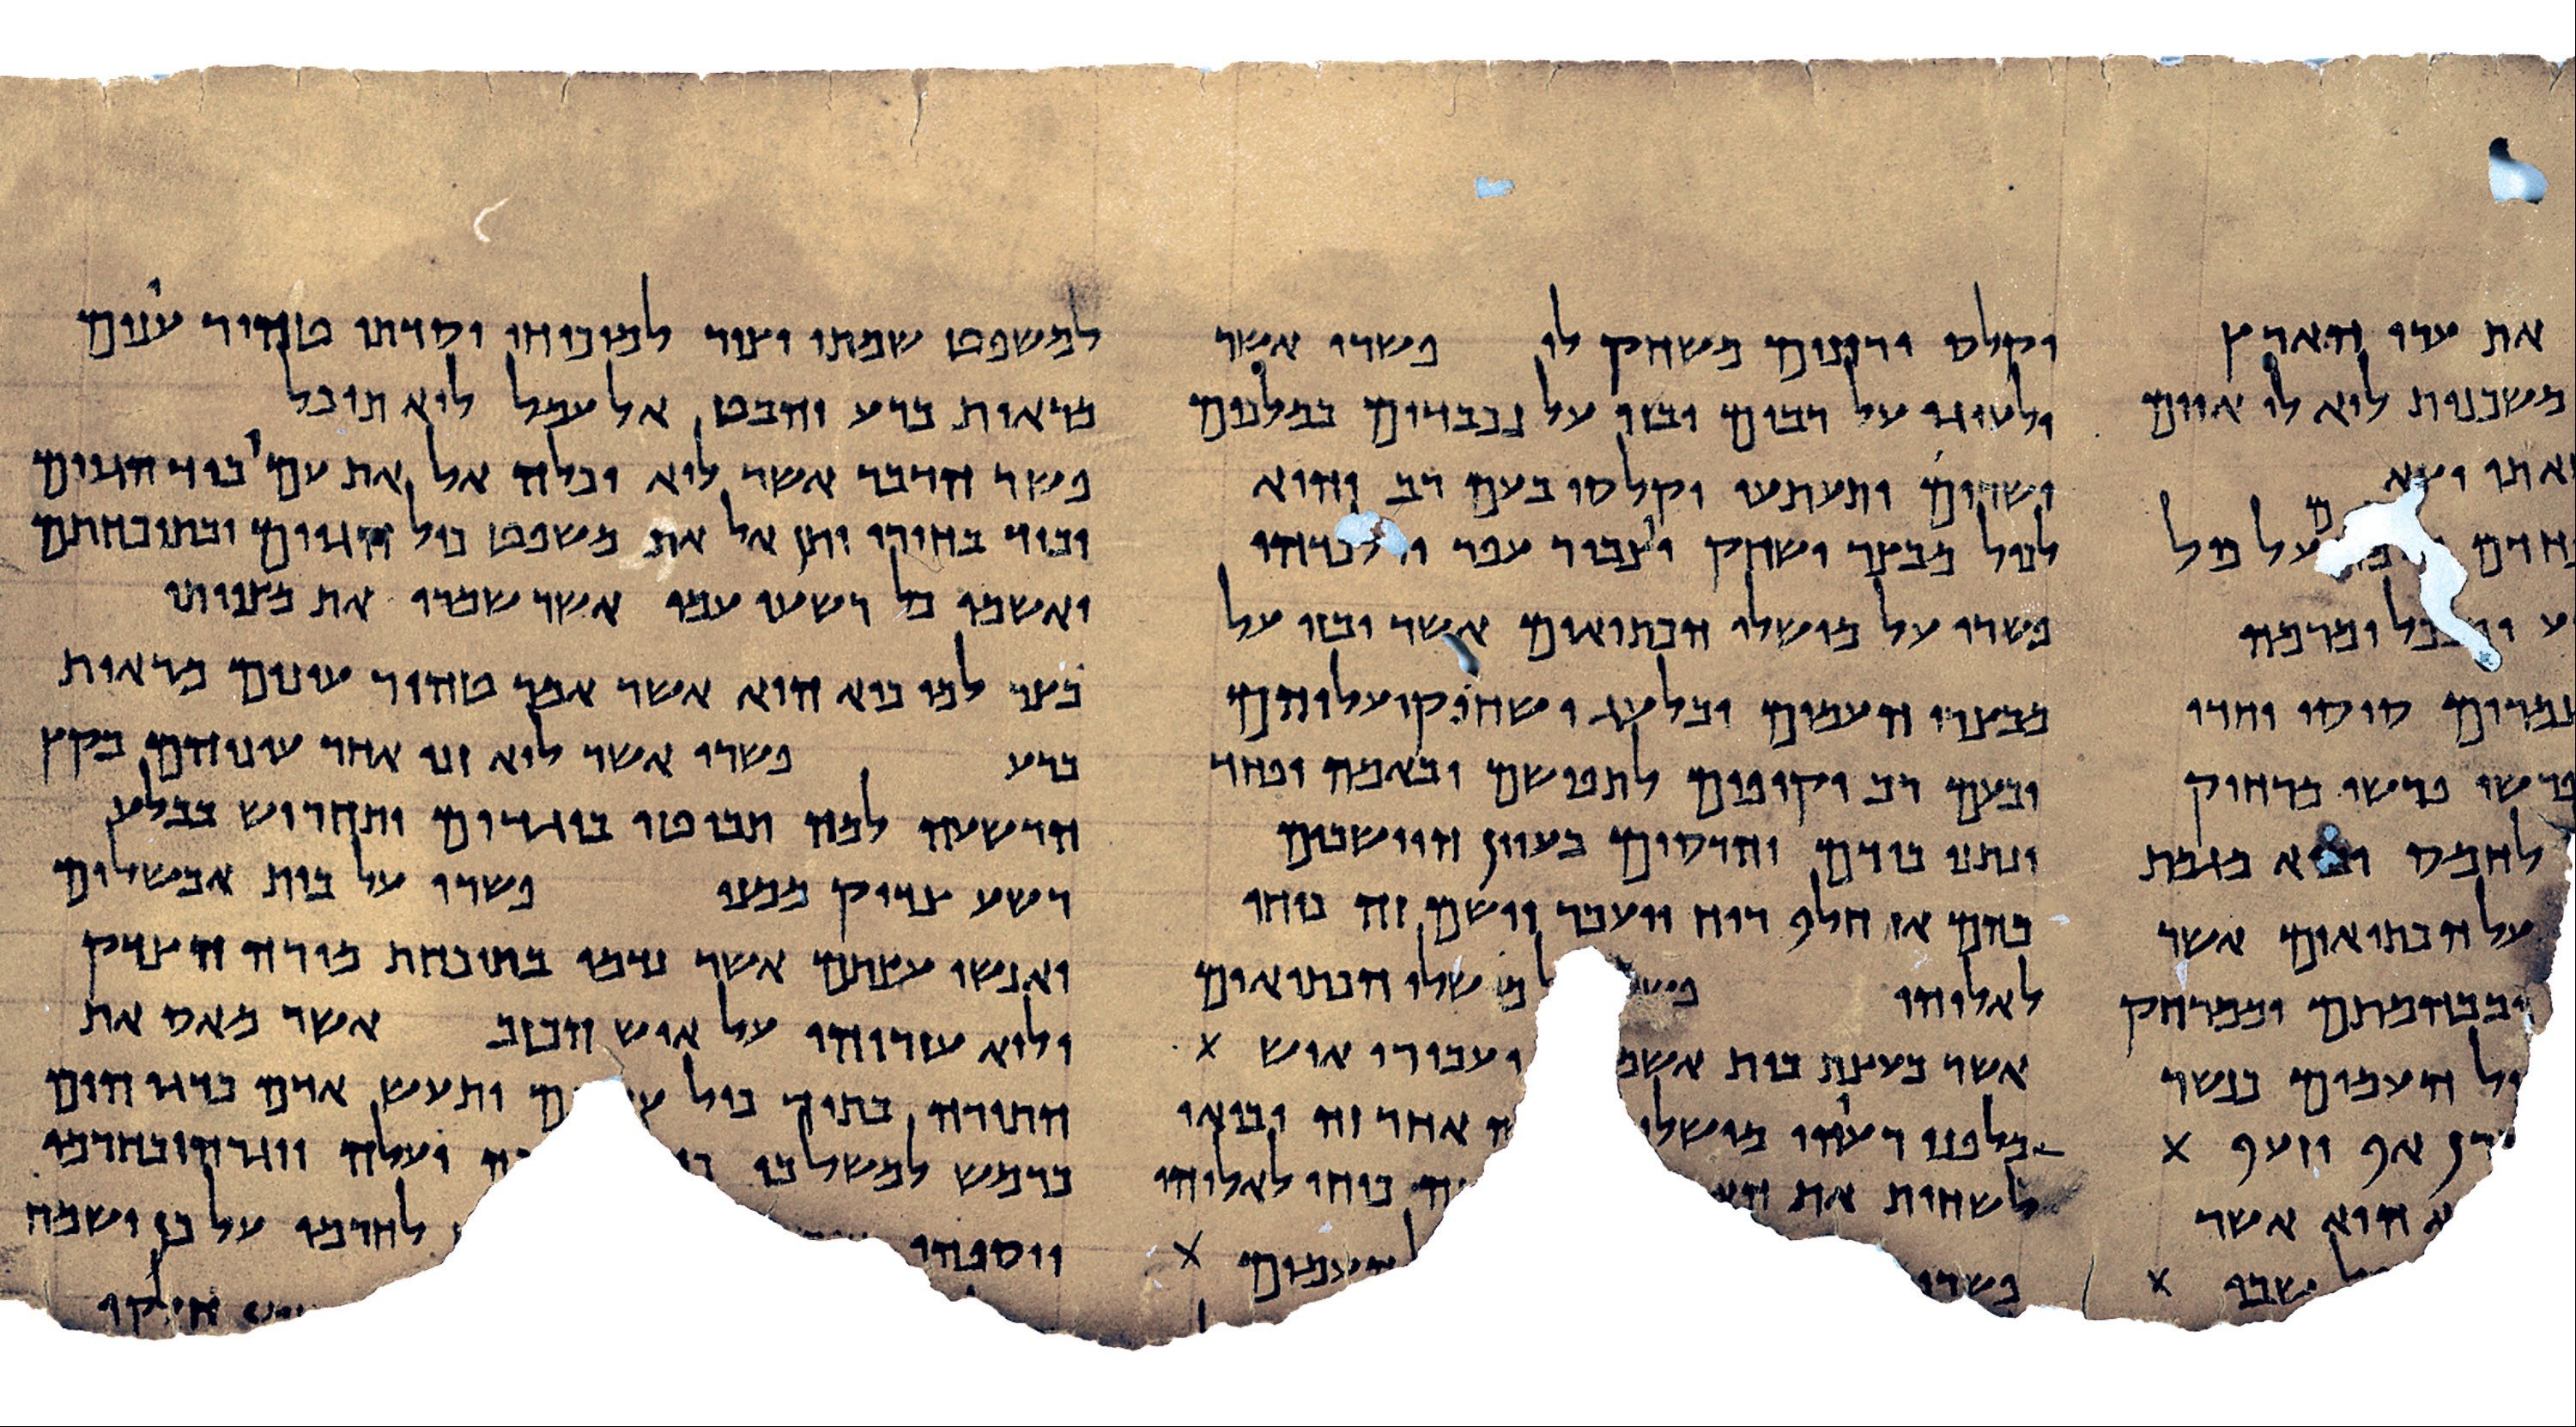 את ערי הארץ
משכנות לוא לו איום
יצא
על כול
ומרמה
נמרים סוסו וחדו
פרשו מרחוק
לחמס יבוא מגמת
על הכתיאים אשר
ובבהמתם וממרחק
העמים כנשר
אף וזעף X
הוא אשר
X
יקלס ורזנים משחק לו פשרו אשר
ילעיגו על רבים ובזו על נכבדים במלכים
ושרים יתעתעו וקלסו בעם רב והוא
לכול מבצר ישחק ויצבור עפר וילכדהו
פשרו על מושלי הכתיאים אשר יבזו על
מבצרי העמים ובלעג ישחוקו עליהם
ובעם רב יקיפום לתפושם ובאמה ופחד
ינתנו בידם והרסום בעוון היושבים
בהם אז חלף רוח ויעבר וישם זה כוחו
לאלוהו מושלי הכתיאים
אשר בעצת בית יעבורו איש X
מלפני רעיהו אחר זה יבואו
לשחית את כוחו לאלוהו
פשרו העמים X
למשפט שמתו וצור למוכיחו יסדתו טהור עינים
מראות ברע והבט אל עמל לוא תוכל
פשר הדבר אשר לוא יכלה אל את עמו ביד הגוים
וביד בחירו יתן אל את משפט כול הגוים ובתוכחתם
יאשמו כל רשעי עמו אשר שמרו את מצוותו
בצר למו כיא הוא אשר אמר טהור עינים מראות
ברע פשרו אשר לוא זנו אחר עיניהם בקץ
הרשעה למה תביטו בוגדים ותחריש בבלע
רשע צדיק ממנו פשרו על בית אבשלום
ואנשי עצתם אשר נדמו בתוכחת מורה הצדק
ולוא עזרוהו על איש הכזב אשר מאס את
התורה בתוך כול ותעש אדם כדגי הים
כרמש למשל בו יעלה ויגרהו בחרמו
ויספהו לחרמו על כן ישמח